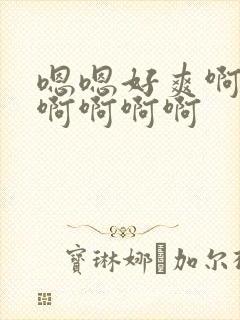 嗯嗯好爽啊
啊啊啊啊
寶琳娜·加尔